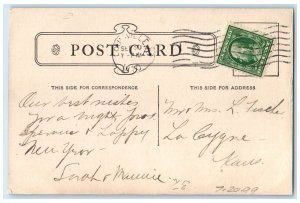 POST CARD
THIS SIDE FOR CORRESPONDENCE
THIS SIDE FOR ADDRESS
Our best wishes
for a bright, pros
perous & Happy
New Year.
Sarah & Maurice
Mr & Mrs L. Fuche
La Cygne
Kans
72099